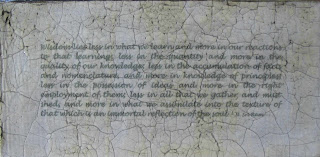 wisdom lies less in what we learn and more in our reactions
to that learning, less in the quantity and more in the
quality of our knowledge; less in the accumulation of facts
and nomenclature, and more in knowledge of principles;
less in the possession of ideas and more in the right
employment of them; less in all that we gather and
and more in what we assimilate into the texture of
that which is an immortal reflection of the soul.